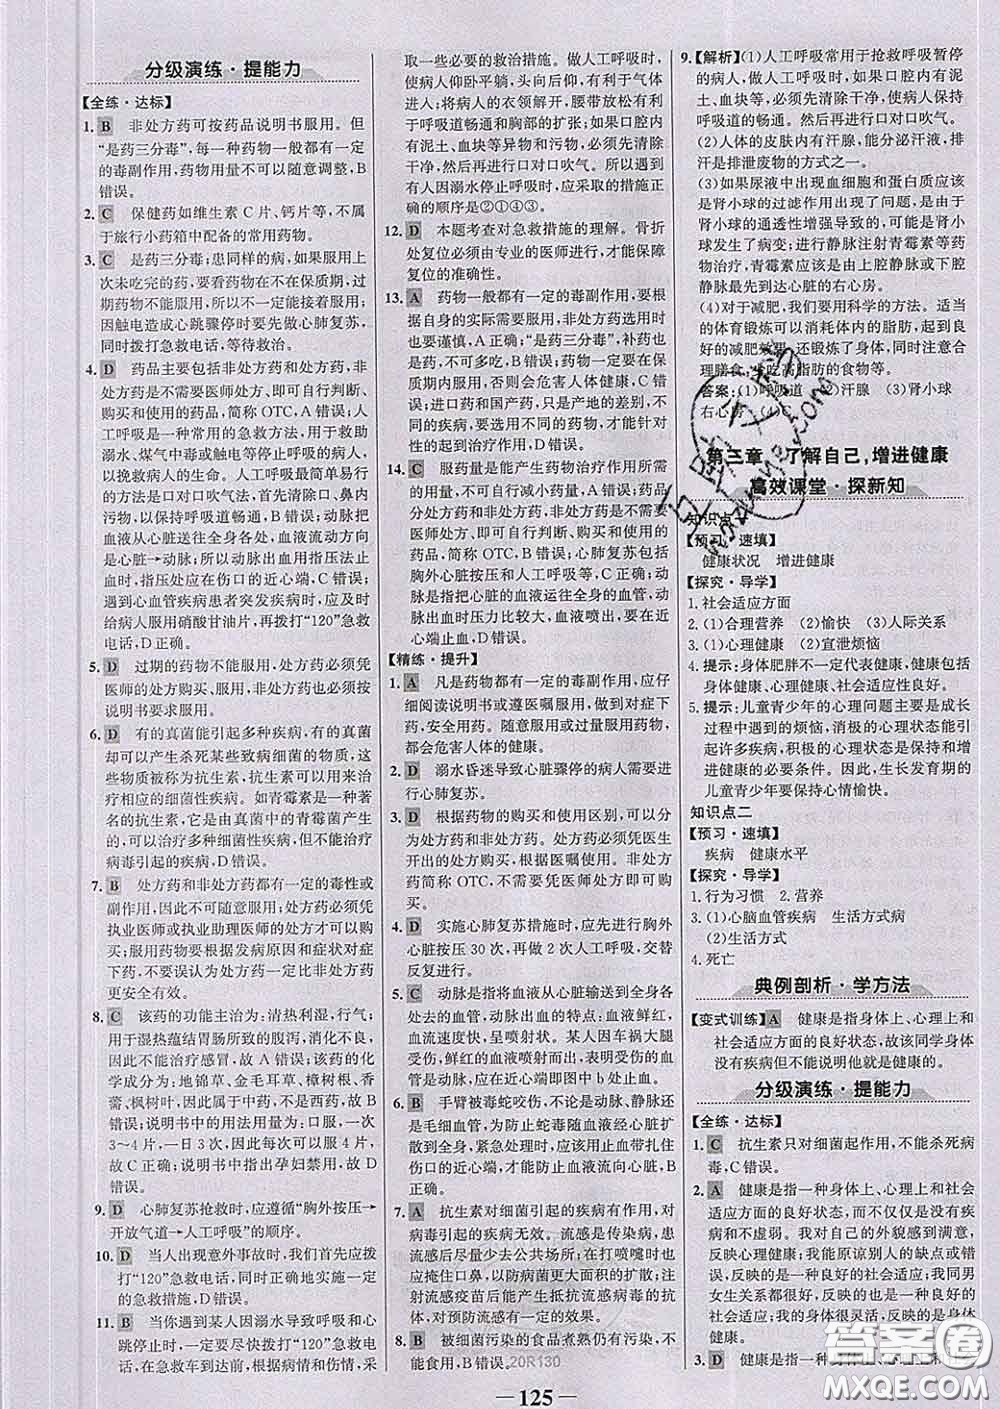 分级演练·提能力
【全练·达标】
1. B 非处方药可按药品说明书服用。但
“是药三分毒”,每一种药物一般都有一定的
毒副作用,药物用量不可以随意调整,B
错误。
2. C 保健药如维生素 C 片、钙片等,不属
于旅行小药箱中配备的常用药物。
3. C 是药三分毒;患同样的病,如果服用上
次未吃完的药,要看药物在不在保质期,过
期药物不能服用,所以不一定能继续服用;
因触电造成心跳骤停时要先做心肺复苏,
同时拨打急救电话,等待救治。
4. D 药品主要包括非处方药和处方药,非
处方药是不需要医师处方,即可自行判断、
购买和使用的药品,简称 OTC,A 错误。人
工呼吸是一种常用的急救方法,用于救助
溺水、煤气中毒或触电等停止呼吸的病人,
以挽救病人的生命。人工呼吸最简易而有
效的方法是口对口吹气法,首先清除口、鼻内
污物,以保持呼吸道畅通,B 错误;动脉把
血液从心脏送往全身各处,血液流动方向是
心脏→动脉,所以动脉出血用指压法止
血时,指压处应在伤口的近心端,C 错误;
遇到心血管疾病患者突发疾病时,应及时
给病人服用硝酸甘油片,再拨打“120”急救
电话,D 正确。
5. D 过期的药物不能服用,处方药必须凭
医师的处方购买、服用,非处方药必须按照
说明书要求服用。
6. D 有的真菌能引起多种疾病,有的真菌
却可以产生杀死某些致病细菌的物质,这
些物质被称为抗生素,抗生素可以用来治
疗相应的细菌性疾病。如青霉素是一种著
名的抗生素,它是由真菌中的青霉菌产生
的,可以治疗多种细菌性疾病,但不能治疗
病毒引起的疾病,D 错误。
7. B 处方药和非处方药都有一定的毒性或
副作用,因此不可随意服用;处方药必须凭
执业医师或执业助理医师的处方才可以购
买;服用药物要根据发病原因和症状对症
下药,不要误认为处方药一定比非处方药更
安全有效。
8. C 该药的功能主治为:清热利湿,行气;
用于湿热蕴结胃肠所致的腹泻、消化不良,
因此不能治疗感冒,故 A 错误;该药的成
分是:地锦草、金毛耳草、樟树根、香
薷、枫树叶,因此不是西药,故 B
错误;说明书中的用法用量为:口服,一次
3~4 片,一日 3 次,因此可以每次服 4 片,
故 C 正确;说明书中指出孕妇禁用,故 D
错误。
9. D 心肺复苏抢救时,应遵循“胸外按压→
开放气道→人工呼吸”的顺序。
10. D 当人出现意外事故时,我们首先应拨
打“120”急救电话,同时正确地实施一定
的急救措施,D 错误。
11. B 当你遇到某人因溺水导致呼吸和心
跳停止时,一定要尽快拨打“120”急救电
话,在急救车到达前,根据病情和伤情,采
取一些必要的救治措施。做人工呼吸时,
使病人仰卧平躺,头向后仰,有利于气体
进入。将病人的衣领解开,腰带放松有利
于呼吸道畅通和胸部的扩张;如果口腔内
有泥土、血块等异物和污物,必须先清除
干净,然后再进行口对口吹气。所以遇到
有人因溺水停止呼吸时,应采取的措施正
确的顺序是②①④③。
12. D 本题考查对急救措施的理解。骨折
处复位必须由专业的医师进行,才能保障
复位的准确性。
13. A 药物一般都有一定的毒副作用,要根
据自身的实际需要服用,非处方药的使用
也要谨慎,A 正确;“是药三分毒”,补药也
是药,不可多吃,B 错误;药物一定要在保
质期内服用,否则会危害人体健康,C 错
误;进口药和国产药,只是产地的差别,不
同的疾病,要选用不同的药物,才能针对
性的起到治疗作用,D 错误。
14. C 服药量是能产生药物治疗作用所需
的用量,不可自行减小药量,A 错误;非处
方药是不需要医师处方,即可自行判断、
购买和使用的药品,处方药是必须凭执业
医师处方才可以购买,并按医嘱服用的药
物,简称 OTC,B 错误;心肺复苏包括胸外
心脏按压和人工呼吸等措施,C 正确;动
脉是指把心脏的血液运往全身的血管,动
脉出血时压力比较大,血液喷出,应在近
心端止血,D 错误。
【精练·提升】
1. A 凡是药物都有一定的毒副作用,应仔
细阅读说明书或遵医嘱服用,做到对症下
药、安全用药。随意服用或过量服用药物,
都会危害人体的健康。
2. D 溺水昏迷导致心脏骤停的病人需要进
行心肺复苏。
3. D 根据药物的购买和使用区别,可以分
为处方药和非处方药。处方药必须凭医生
开出的处方购买,根据医嘱使用。非处方
药简称 OTC,不需要凭医师处方即可购买。
4. D 实施心肺复苏措施时,应先进行胸外
心脏按压 30 次,再做 2 次人工呼吸,交替
反复进行。
5. C 动脉是指将血液从心脏输送到全身各
处去的血管,动脉出血的特点:血液鲜红,
血流速度快,呈喷射状。某人因车祸大腿
受伤,鲜红的血液喷射而出,说明是动脉
受伤,应在近心端即图中 b 处止血。
6. B 手臂被毒蛇咬伤,不论是动脉、静脉还
是毛细血管,为防止蛇毒随血液经心脏扩
散到全身,紧急处理时,应该用止血带扎住
伤口的近心端,防止血液流向心脏,B 正确。
7. A 抗生素对细菌引起的疾病有作用,对
病毒引起的疾病无效;流感是传染病,患
流感后尽量少去公共场所,在打喷嚏时也
应掩住口鼻,以防病菌更大范围的扩散;注
射流感疫苗后能产生抵抗流感病毒的抗
体,对预防流感有一定的效果。
8. B 被细菌污染的食品煮熟仍有污染,不
能食用,B 错误。20R130
9. 【解析】(1)人工呼吸常用于抢救呼吸暂停
的病人。做人工呼吸时,如果口腔内有泥
土、血块等,必须先清除干净,以保持呼吸
道的畅通,然后再进行口对口吹气。
(2)人体的皮肤有汗腺,能分泌汗液,排
汗是排泄废物的方式之一。
(3)如果尿液中出现血细胞和蛋白质应该
是肾小球的过滤作用出现了问题,是由于
肾小球的通透性增强导致的,可能是肾小
球发生了病变;进行静脉注射青霉素等药
物治疗,青霉素应该是由上腔静脉或下腔
静脉最先到达心脏的右心房。
(4)对于减肥,我们要用科学的方法。适当
的体育锻炼可以消耗体内的脂肪,起到良
好的减肥效果,还锻炼了身体,同时注意合
理膳食,少吃高脂肪的食物等。
答案:(1)呼吸道 (2)汗腺 (3)肾小球
右心房 (4)C
第三章 了解自己,增进健康
高效课堂·探新知
知识点一
【预习·速填】
健康状况 增进健康
【探究·导学】
1. 社会适应方面
2. (1)合理营养 (2)愉快 (3)人际关系
3. (1)心理健康 (2)宣泄烦恼
4. 提示:身体肥胖不一定代表健康,健康包括
身体健康、心理健康、社会适应性良好。
5. 提示:儿童青少年的心理问题主要是成长
过程中遇到的烦恼,消极的心理状态能引
起许多疾病,积极的心理状态是保持和增
进健康的必要条件。因此,生长发育期的
儿童青少年要保持心情愉快。
知识点二
【预习·速填】
疾病 健康水平
【探究·导学】
1. 行为习惯 2. 营养
3. (1)心脑血管疾病 生活方式病
(2)生活方式
4. 死亡
典例剖析·学方法
【变式训练】A 健康是指身体上、心理上和
社会适应方面的良好状态,故该同学身体
没有疾病但不能说明他就是健康的。
分级演练·提能力
【全练·达标】
1. C 抗生素只对细菌起作用,不能杀死病
毒,C 错误。
2. A 健康是指一种身体上、心理上和社会
适应方面的良好状态,而不仅仅是没有疾
病和不虚弱。我对自己的外貌感到满意,
反映心理健康;我能原谅别人的缺点或错
误,反映的是良好的社会适应;我同男女生
关系都很好,反映的是良好的社会适应;
我的身体很灵活,反映的是身体健康。
3. D 健康是指一种身体上、心理上和社会
125
答案圈
MXQE.COM